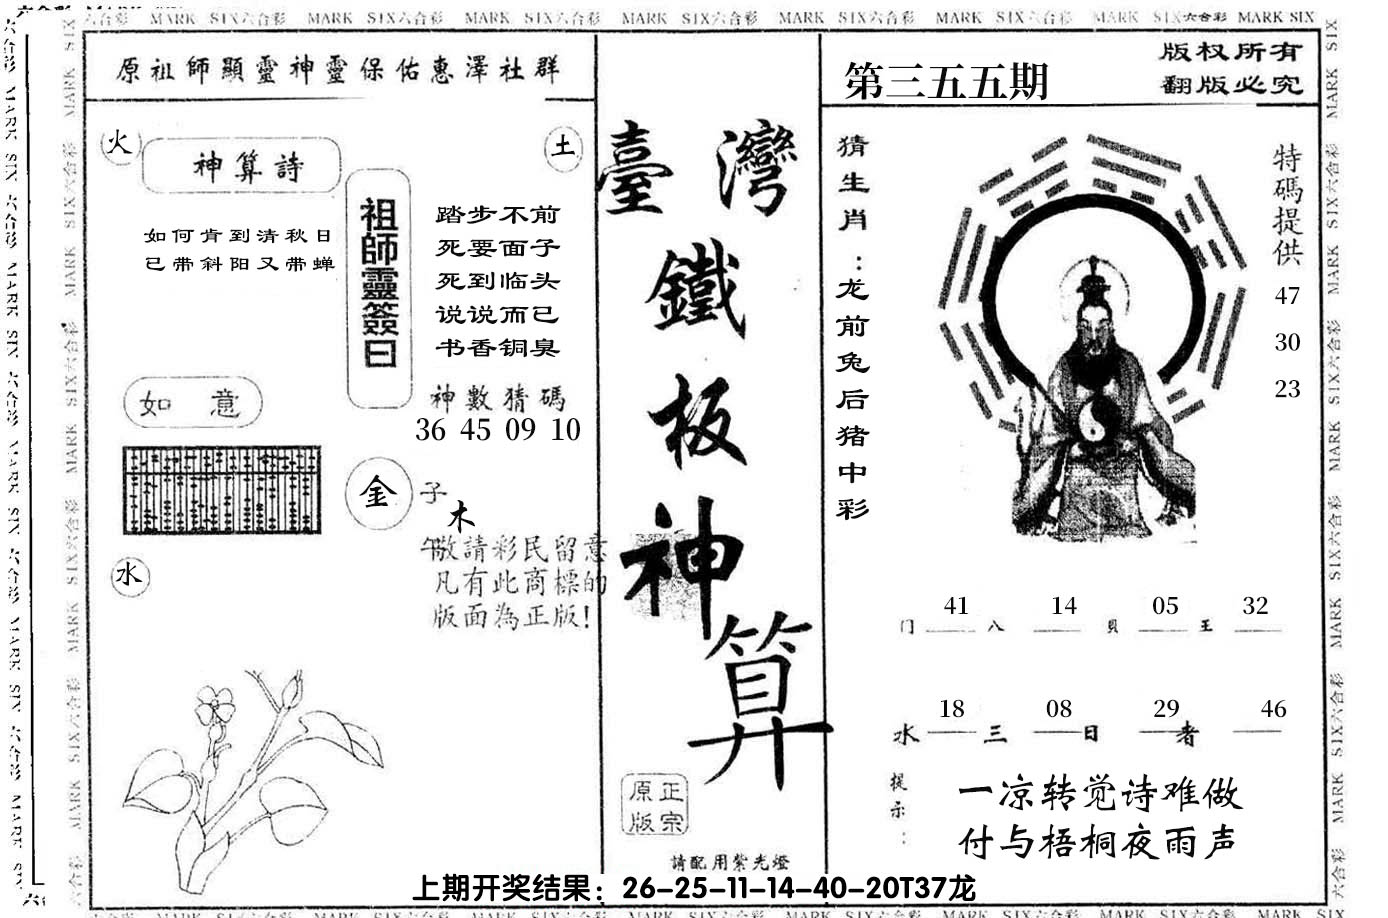 MARK SIX六合彩 MARK SIX六合彩 MARK SIX六合彩 MARK SIX六合彩 MARK SIX六合彩 MARK SIX六合彩 MARK SIX六合彩 MARK SIX
原祖師顯靈神靈保佑惠澤社群
火
土
神算詩
如何肯到清秋日
已带斜阳又带蝉
祖師靈簽曰
踏步不前
死要面子
死到临头
说说而已
书香铜臭
神數猜碼
36 45 09 10
如意
金
子
木
午
水
敬請彩民留意
凡有此商標的
版面為正版!
臺灣
鐵
板
神
算
正宗
原版
請配用紫光燈
第三五五期
版权所有
翻版必究
猜生肖:龙前兔后猪中彩
特碼提供
47
30
23
41 14 05 32
门 八 貝 王
18 08 29 46
水 三 日 者
提示:
一凉转觉诗难做
付与梧桐夜雨声
上期开奖结果：26-25-11-14-40-20T37龙